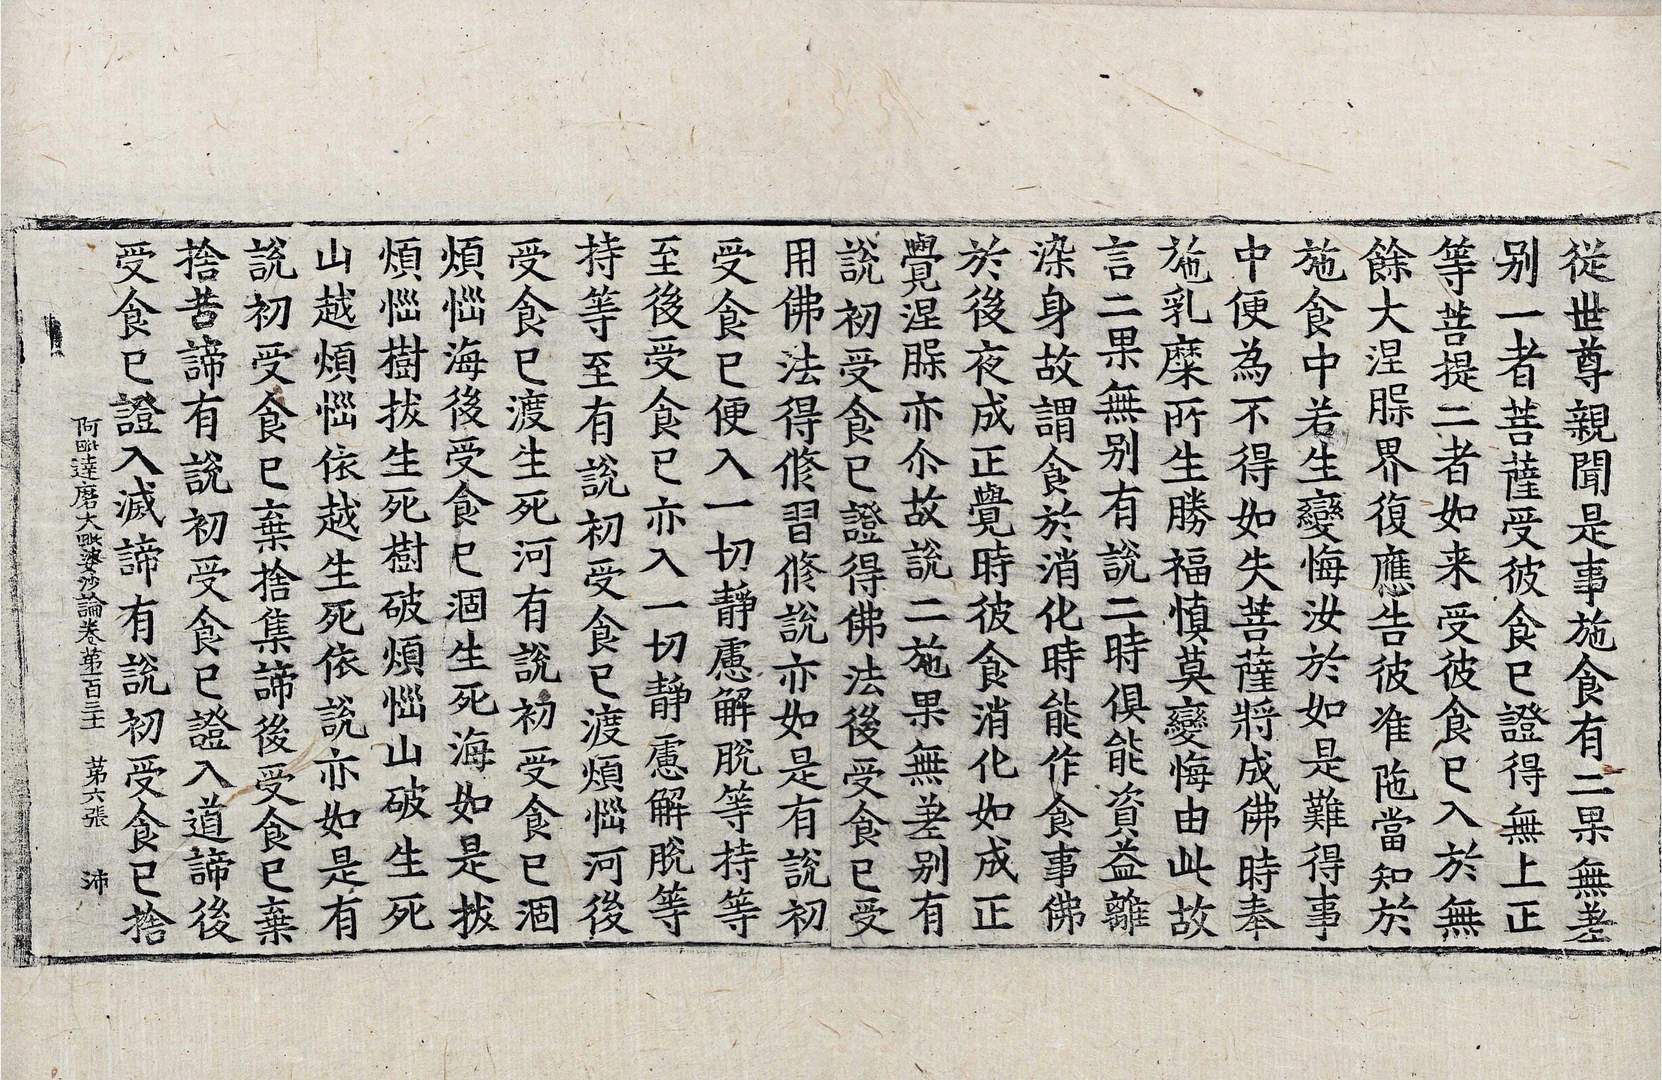 從世尊親聞是事施食有二果無差
别一者菩薩受彼食已證得無上正
等菩提二者如来受彼食已入於無
餘大涅槃界復應告彼准陁當知於
施食中若生變悔汝於如是難得事
中便為不得如失菩薩將成佛時奉
施乳糜所生勝福慎莫變悔由此故
言二果無别有說二時俱能資益離
染身故謂食於消化時能作食事佛
於後夜成正覺時彼食消化如成正
覺涅槃亦尒故說二施果無差别有
說初受食已證得佛法後受食已受
用佛法得修習修說亦如是有說初
受食已便入一切靜慮解脫等持等
至後受食已亦入一切靜慮解脫等
持等至有說初受食已渡煩惱河後
受食已渡生死河有說初受食已涸
煩惱海後受食已涸生死海如是拔
煩惱樹拔生死樹破煩惱山破生死
山越煩惱依越生死依說亦如是有
說初受食已棄捨集諦後受食已棄
捨苦諦有說初受食已證入道諦後
受食已證入滅諦有說初受食已捨
阿毗達磨大毗婆沙論卷第一百三十 第六張 沛